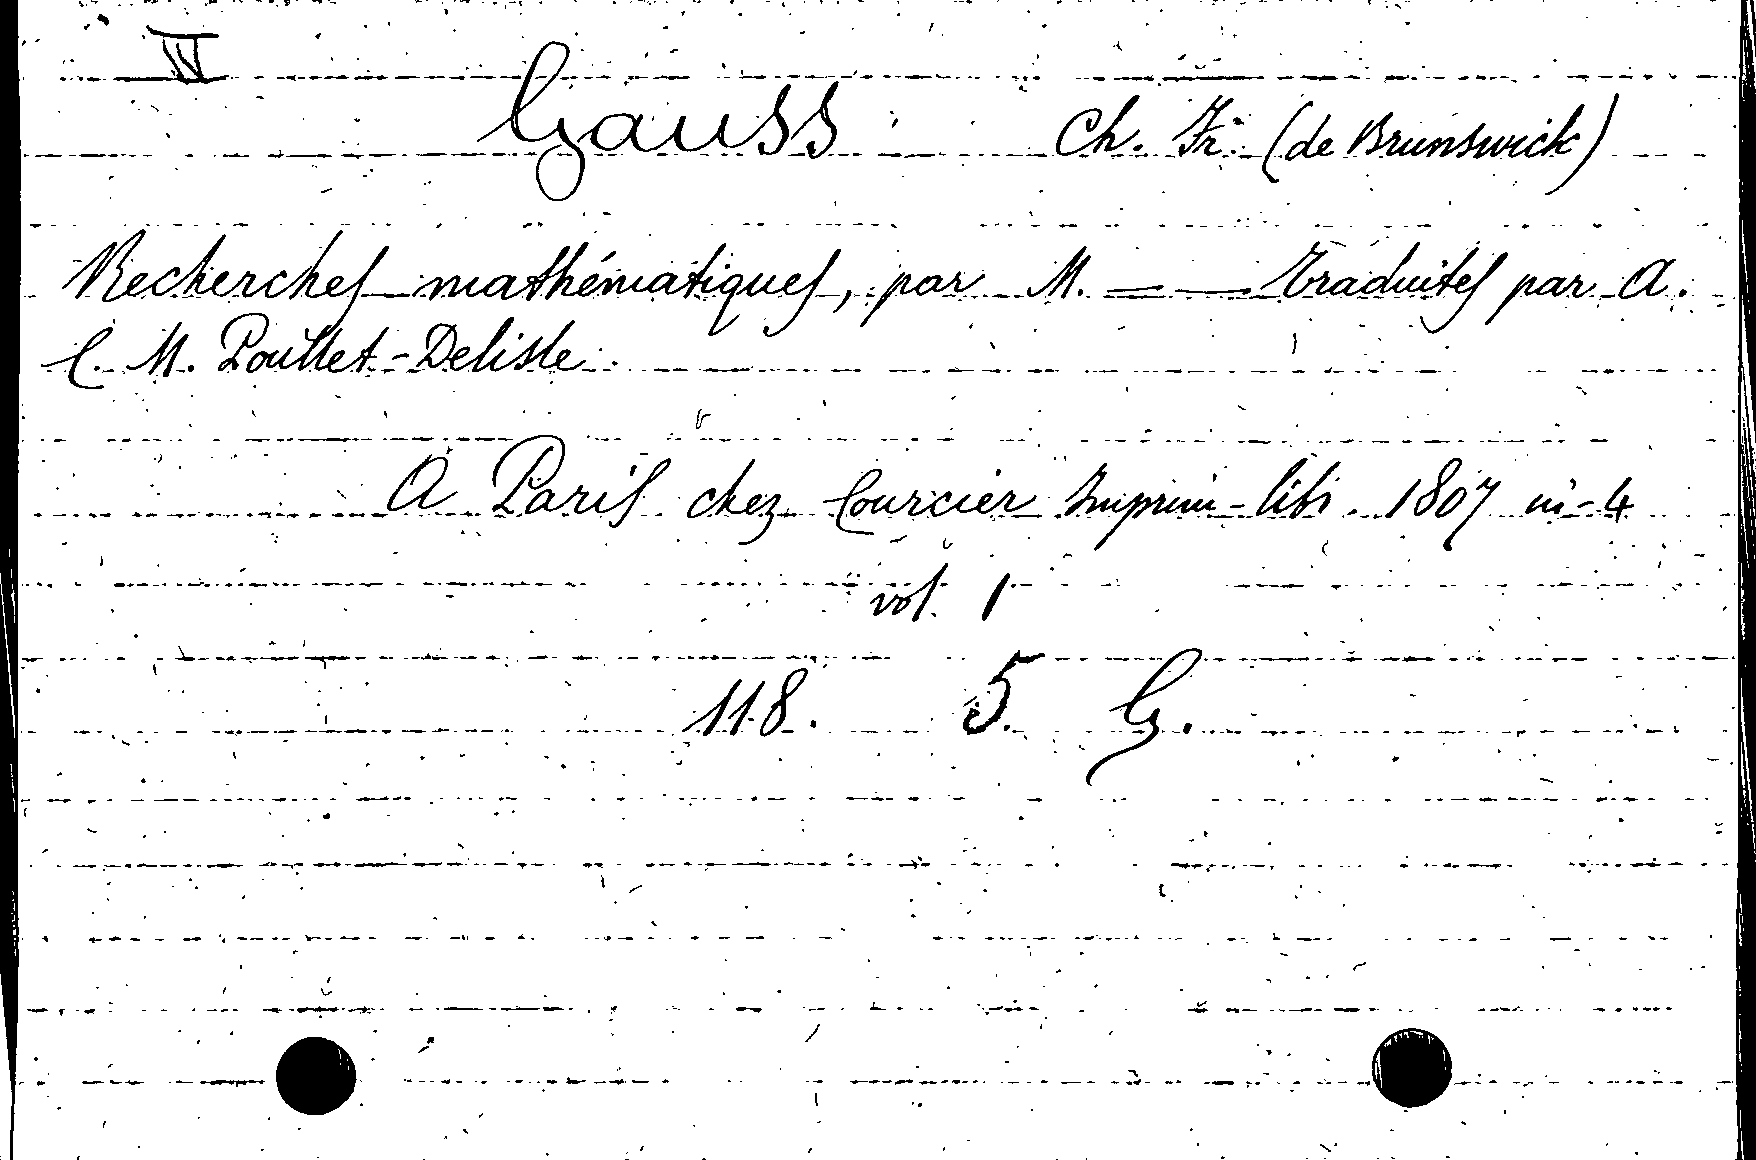 IV
Gauss Ch. Fr. (de Brunswick)
Recherches mathématiques, par M. — — Traduites par A.
C. M. Poullet-Delisle.
A Paris chez Courcier Imprim-libr. 1807 in-4
vol. 1
118. 5. G.